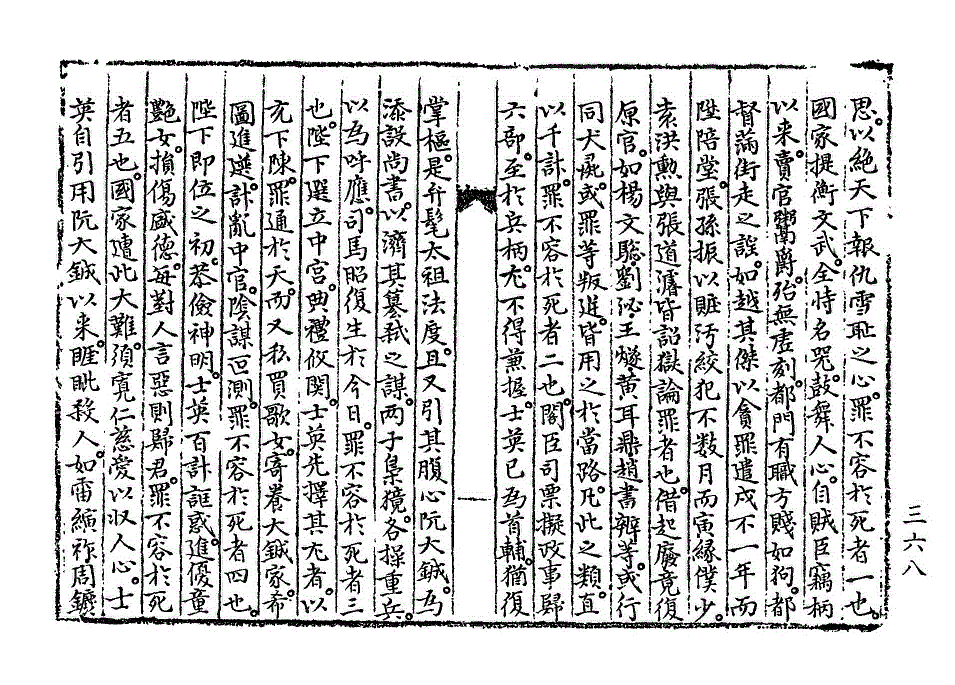 思。以絶天下報仇雪耻之心。罪不容於死者一也。
國家提衡文武。全恃名器。鼓舞人心。自賊臣竊柄
以来。賣官鬻爵。殆無虚刻。都門有職方賤如狗。都
督滿街走之謡。如越其傑以貪罪遣戍不一年而
陞陪堂。張孫振以賍污絞犯不数月而寅縁僕少。
袁洪勲與張道濬皆詔獄論罪者也。借起廢竟復
原官。如楊文驄劉泌王燧黄耳鼎趙書辨等。或行
同犬彘。或罪等叛逆。皆用之於當路。凡此之類。直
以千計。罪不容於死者二也。閣臣司票擬。政事歸
六部。至於兵柄。尤不得兼握。士英已為首輔。猶復
掌樞。是弁髦太祖法度。且又引其腹心阮大鋮。為
添設尚書。以濟其簒弒之謀。两子梟獍。各操重兵
以為呼應。司馬昭復生於今日。罪不容於死者三
也。陛下選立中宫。典禮攸関。士英先擇其尤者。以
充下陳。罪通於天。而又私買歌女。寄養大鋮家。希
圖進選。計亂中宫。陰謀叵測。罪不容於死者四也。
陛下即位之初。恭儉神明。士英百計誑惑。進優童
艷女。損傷盛德。每對人言惡則歸君。罪不容於死
者五也。國家遭此大難。須寛仁慈愛以収人心。士
英自引用阮大鋮以来。睚眦殺人。如雷縯祚周鑣
三六八